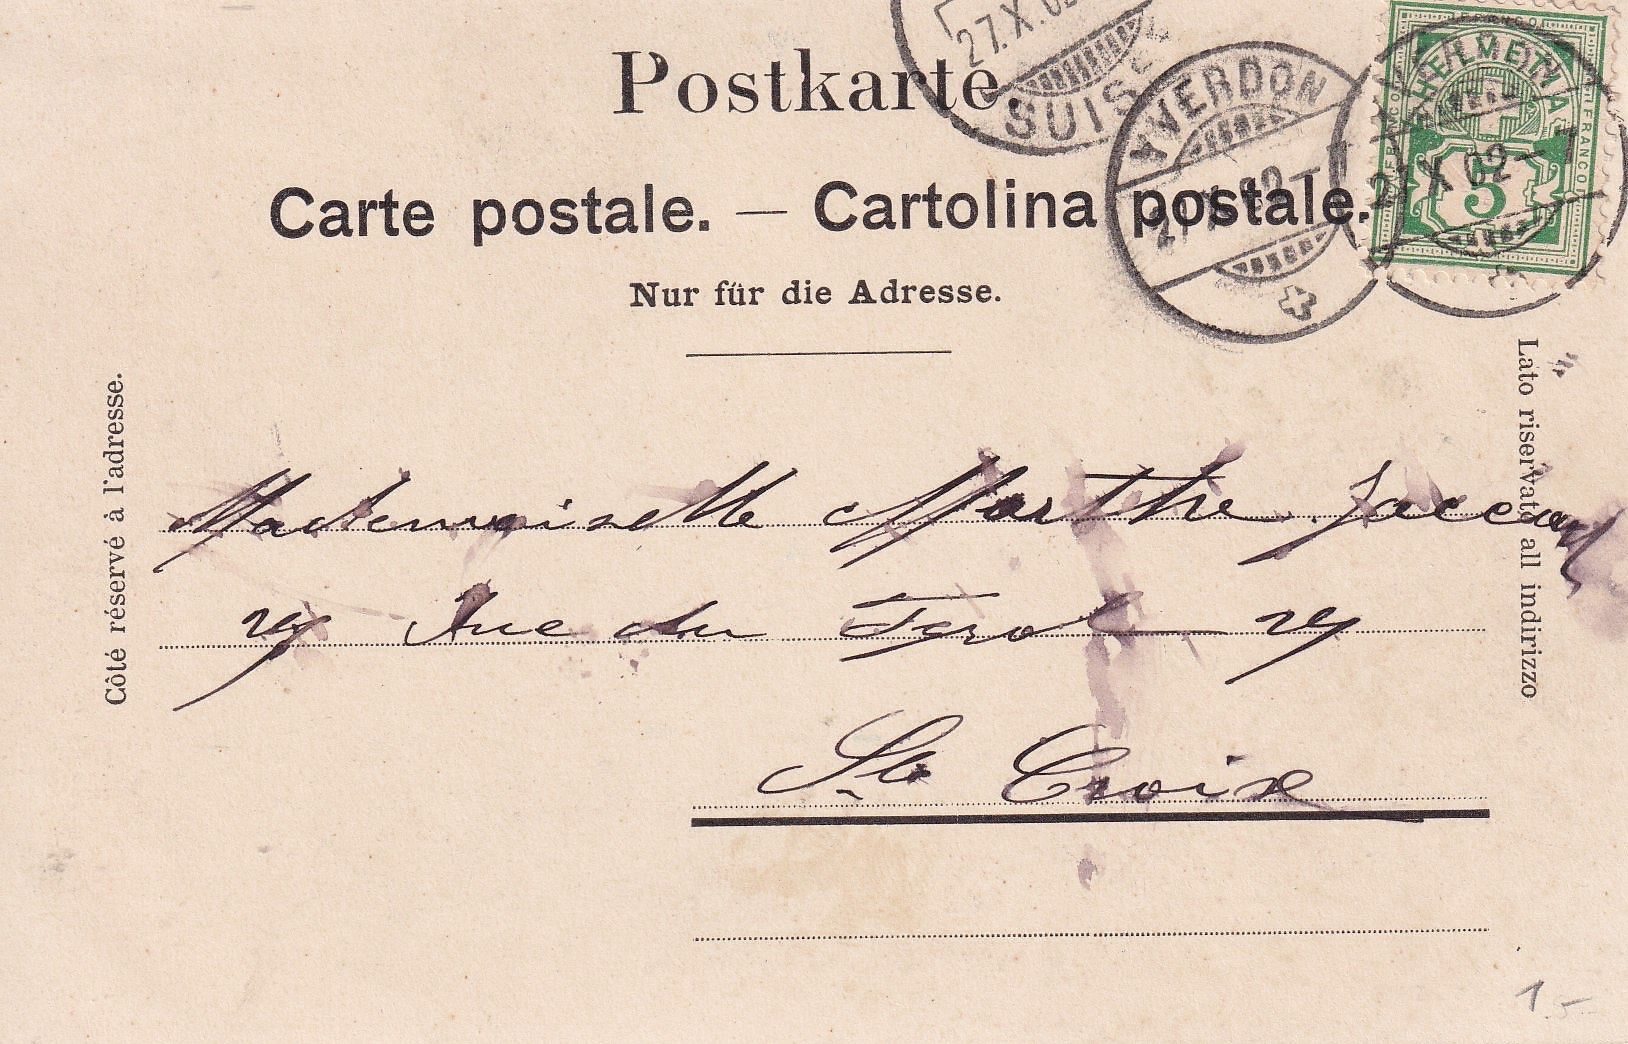 Postkarte.
Carte postale. — Cartolina postale.
Nur für die Adresse.
27.X.02
SUISSE
YVERDON
27.X.02-
27 X 02-7
FRANCO
FRANCO
5
Côté réservé à l'adresse.
Lato riservato all indirizzo
Mademoiselle Marthe Jaccard
Rue du Tyrol
Ste Croix
1.5-